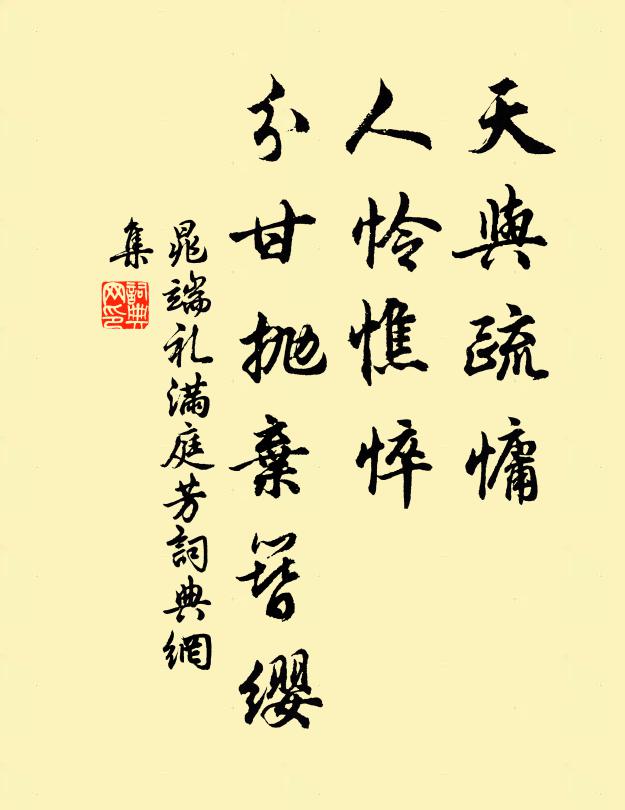 天與疏慵
人憐憔悴
分甘抛棄簪纓
晁端礼滿庭芳詞典網
集
詞典
网印